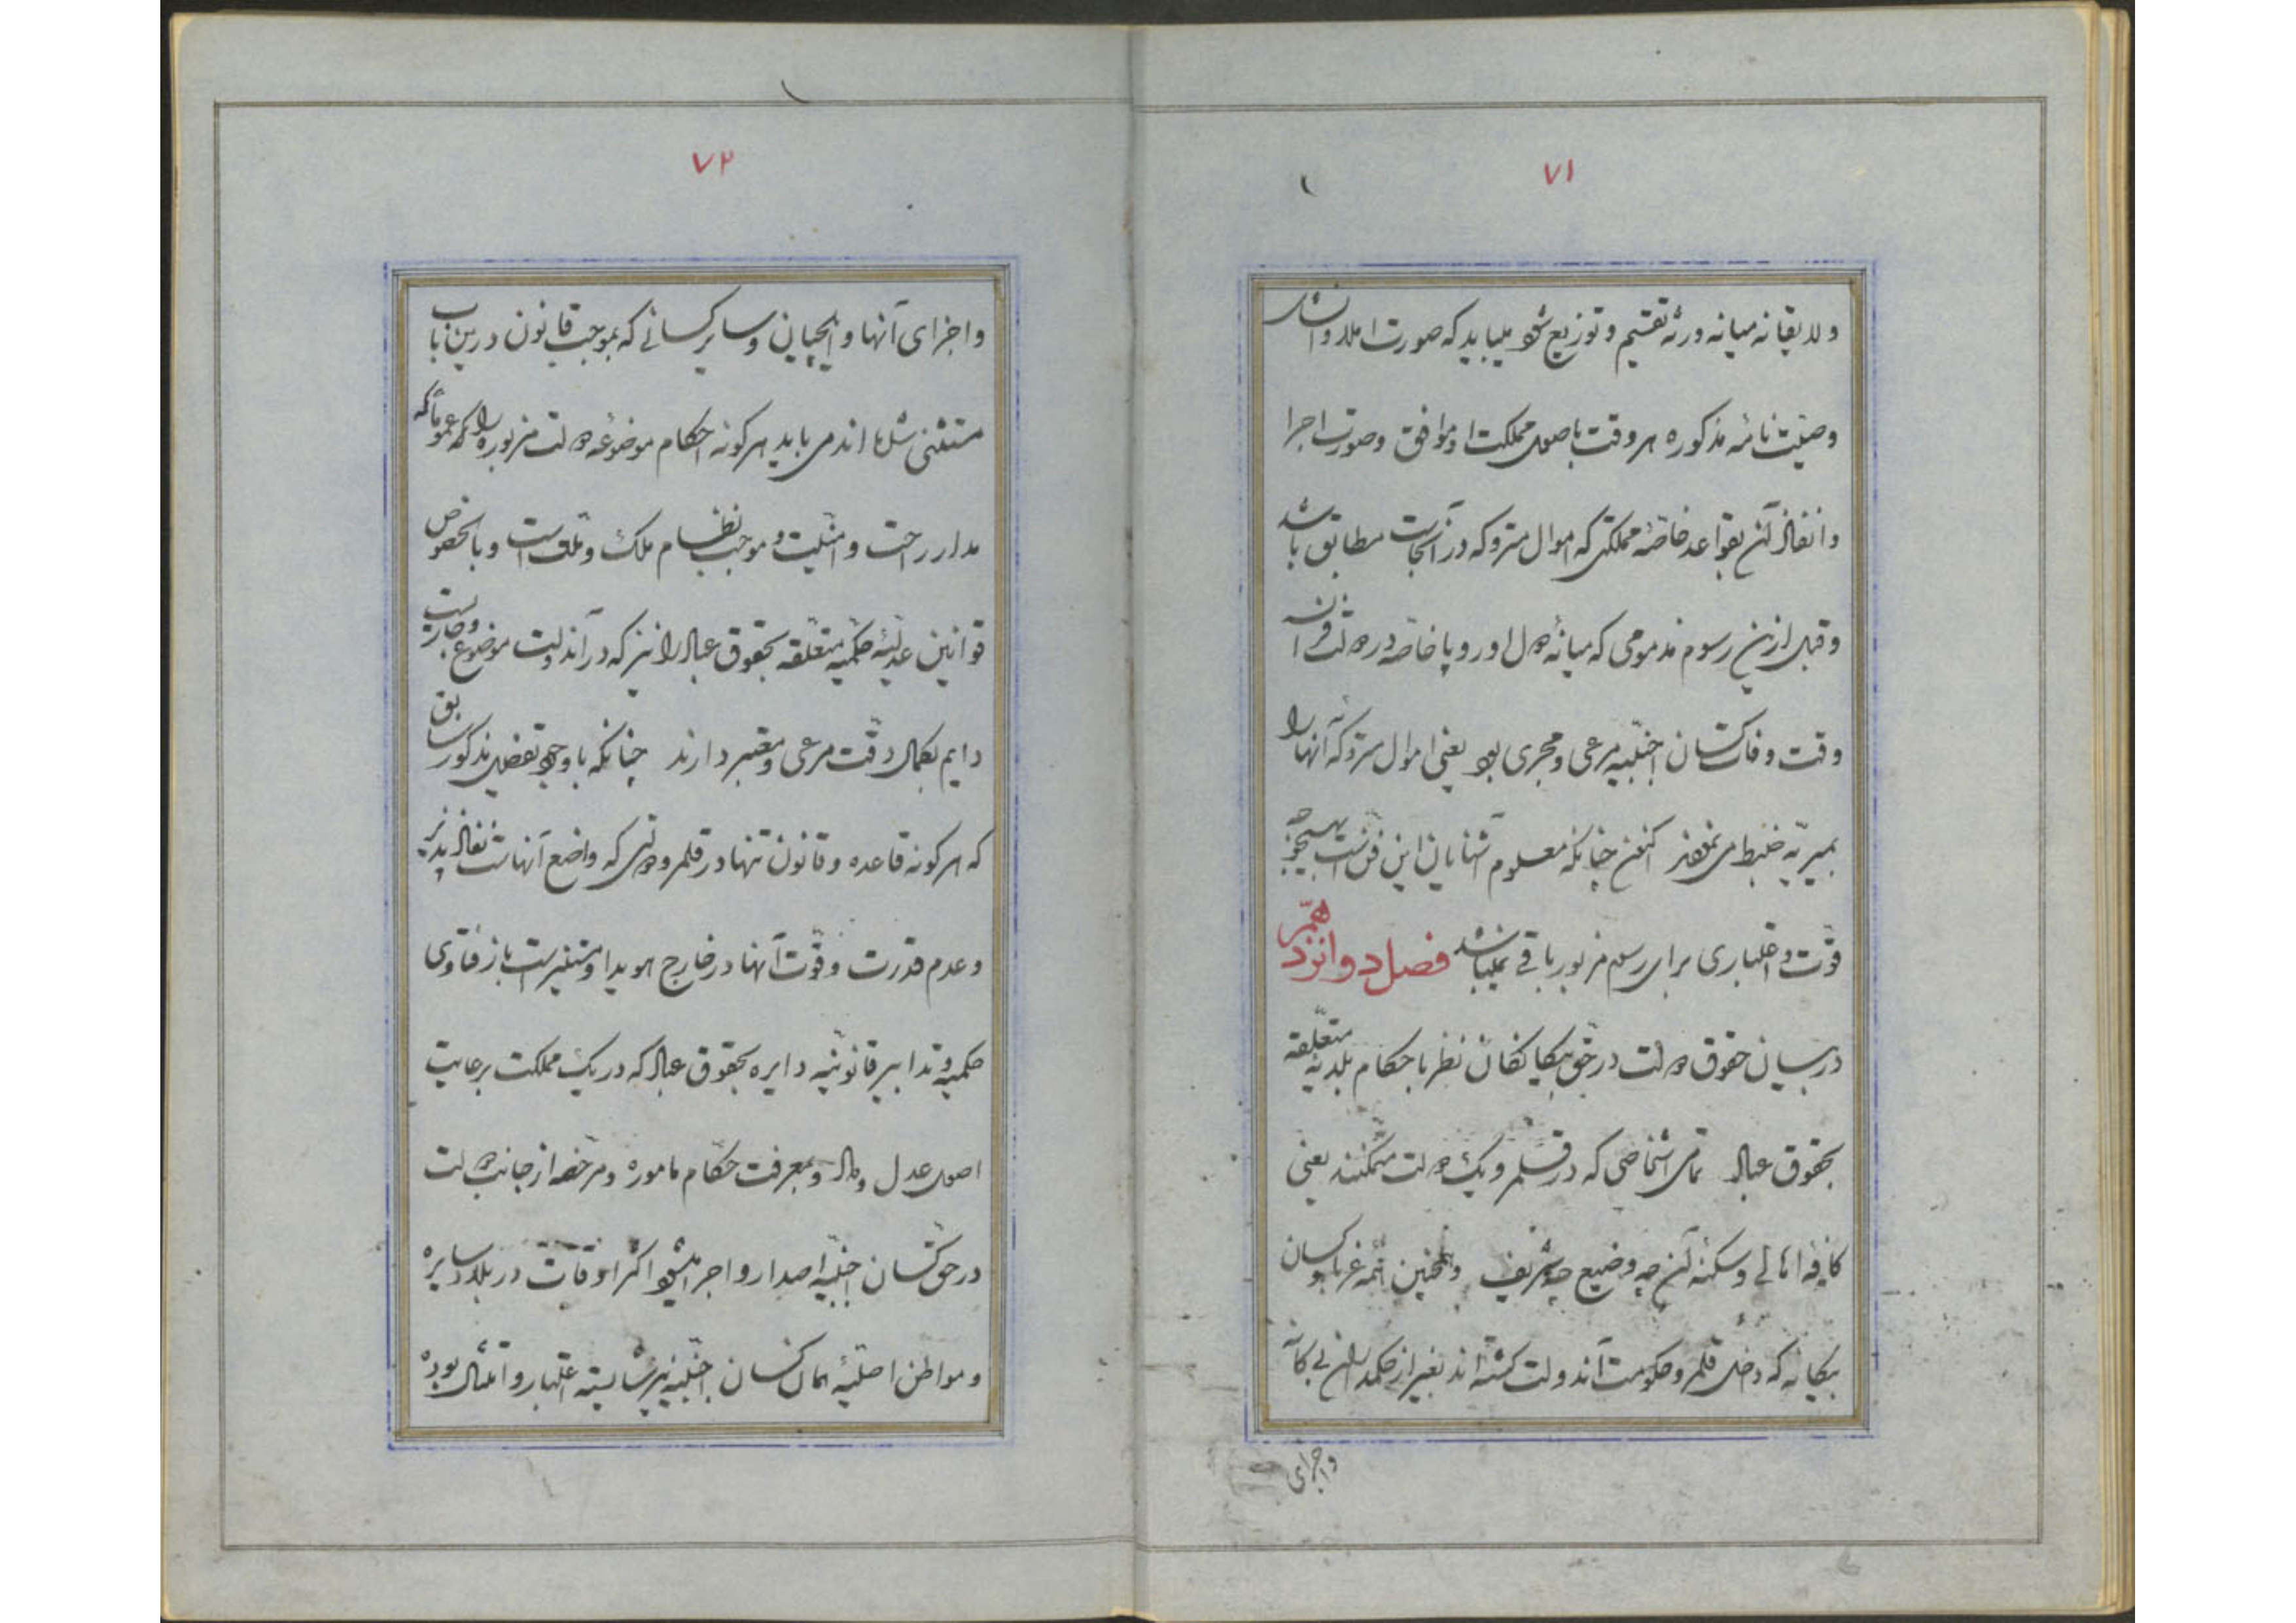 ۷۱
ولایقانه میانه ورثه تقسیم و توزیع شود میباید که صورت املا و انشای
وصیت نامۀ مذکوره هر وقت باصول مملکت او موافق و صورت اجرا
و انفاذ آن بقواعد خاصۀ مملکتی که اموال متروکه در آنجاست مطابق باشد
و قبل ازین رسوم مذمومی که میانۀ دول اوروپا خاصه در دولت فرانسه
وقت وفات کسان اجنبیه مرعی و مجری بود یعنی اموال متروکۀ آنها را
بمیریه ضبط می نمودند اکنون چنانکه معلوم آشنایان این فن است هیچگونه
قوت و اعتباری برای رسم مزبور باقی نمیباشد فصل دوانزدهم
در بیان حقوق دولت در حق بیکانکان نظر باحکام بلدیه متعلقه
بحقوق عباد تمامی اشخاصی که در قلمرو یک دولت متمکنند یعنی
کافه اهالی و سکنه آن چه وضیع چه شریف و همچنین همه غربا و کسان
بیکانه که داخل قلمرو حکومت آندولت کشته اند بغیر از حکمداران بیکانه
واجزای
۷۲
واجزای آنها و ایلچیان و سایر کسانی که بموجب قانون درین باب
مستثنی شده اند می باید هر کونه احکام موضوعه دولت مزبوره را که عموماً که
مدار راحت و امنیت و موجب نظام ملک و ملت است و بالخصوص
قوانین عدلیۀ حکمیه متعلقه بحقوق عباد را نیز که در آندولت موضوع و جاریست
دایم بکمال دقت مرعی و معتبر دارند چنانکه با وجود تفصیل مذکور سابق
که هر کونه قاعده و قانون تنها در قلمرو دولتی که واضع آنهاست نفاذ پذیر
و عدم قدرت و قوت آنها در خارج هویدا و مستنیر است باز فتاوی
حکمیه و تدابیر قانونیه دایره بحقوق عباد که در یک مملکت برعایت
اصول عدل و داد و بمعرفت حکام ماموره و مرخصه از جانب دولت
در حق کسان اجنبیه اصدار و اجرا میشود اکثر اوقات در بلاد سایره
و مواطن اصلیۀ همان کسان اجنبیه نیز شایسته اعتبار و امتثال بوده